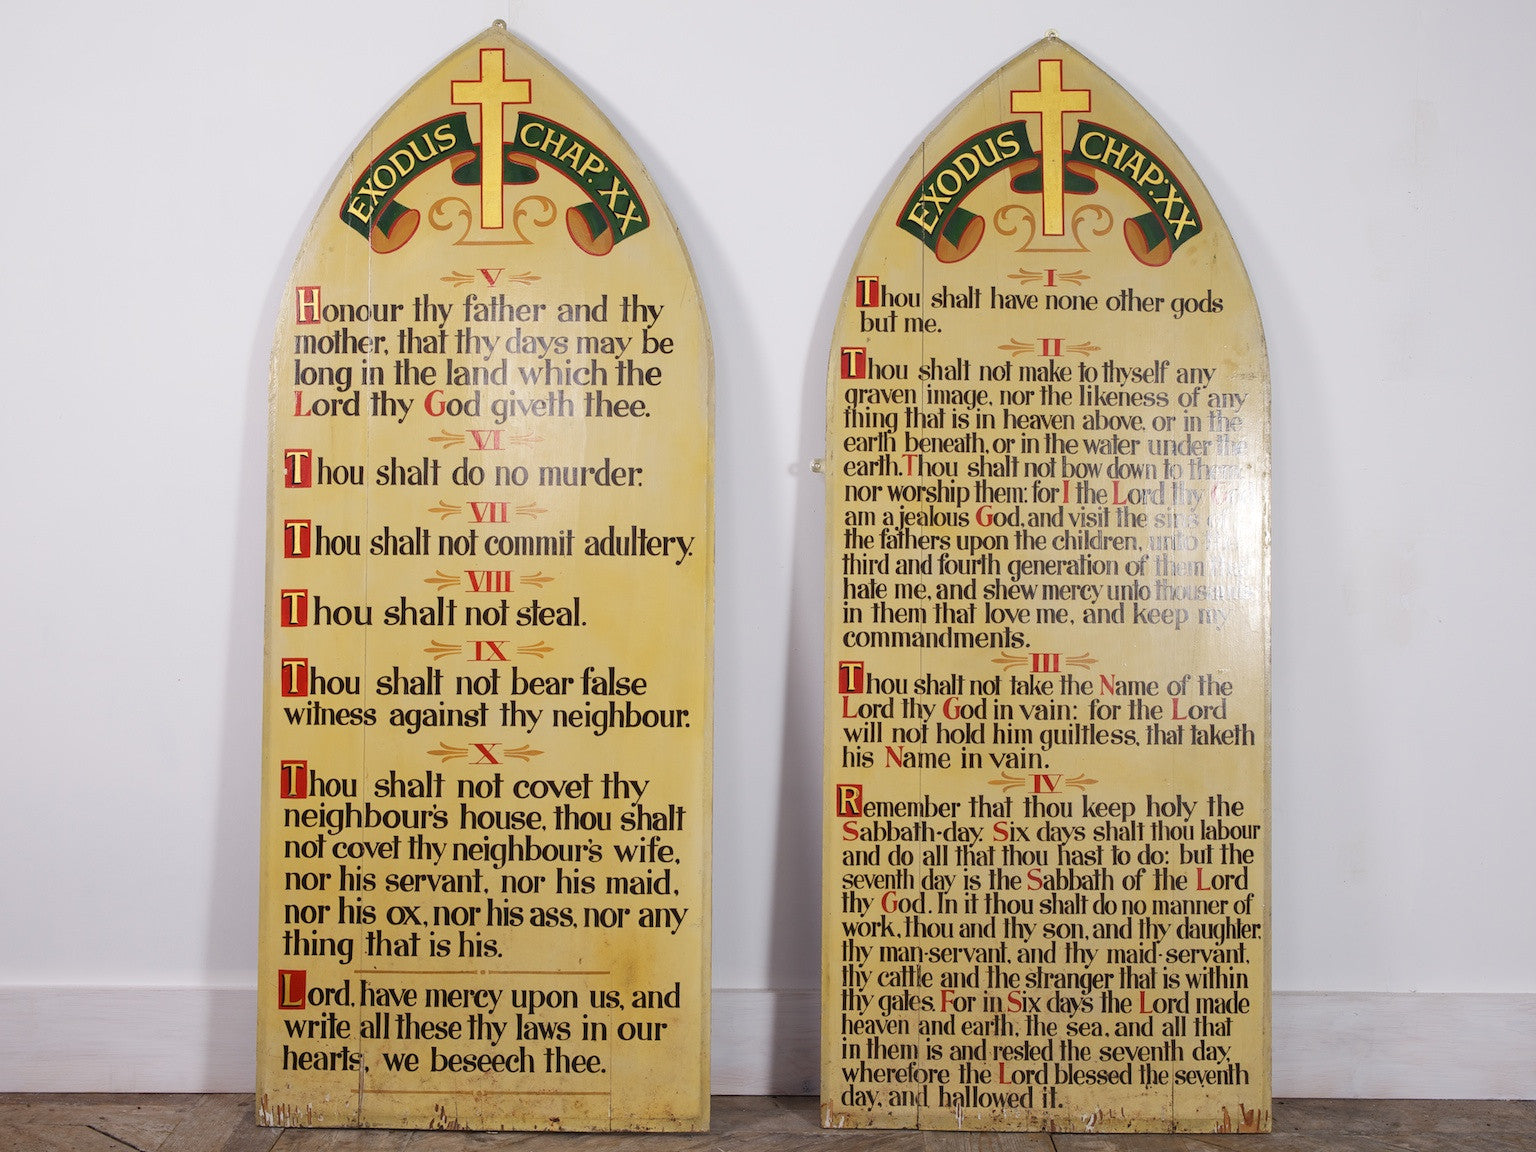 EXODUS CHAP: XX
V
Honour thy father and thy
mother, that thy days may be
long in the land which the
Lord thy God giveth thee.
VI
Thou shalt do no murder.
VII
Thou shalt not commit adultery.
VIII
Thou shalt not steal.
IX
Thou shalt not bear false
witness against thy neighbour.
X
Thou shalt not covet thy
neighbour's house, thou shalt
not covet thy neighbour's wife,
nor his servant, nor his maid,
nor his ox, nor his ass, nor any
thing that is his.
Lord, have mercy upon us, and
write all these thy laws in our
hearts, we beseech thee.
EXODUS CHAP: XX
I
Thou shalt have none other gods
but me.
II
Thou shalt not make to thyself any
graven image, nor the likeness of any
thing that is in heaven above, or in the
earth beneath, or in the water under the
earth. Thou shalt not bow down to them
nor worship them: for I the Lord thy
am a jealous God, and visit the sins
the fathers upon the children, unto
third and fourth generation of them
hate me, and shew mercy unto thousands
in them that love me, and keep my
commandments.
III
Thou shalt not take the Name of the
Lord thy God in vain: for the Lord
will not hold him guiltless, that taketh
his Name in vain.
IV
Remember that thou keep holy the
Sabbath-day. Six days shalt thou labour
and do all that thou hast to do: but the
seventh day is the Sabbath of the Lord
thy God. In it thou shalt do no manner of
work, thou and thy son, and thy daughter,
thy man-servant, and thy maid-servant,
thy cattle and the stranger that is within
thy gates. For in Six days the Lord made
heaven and earth, the sea, and all that
in them is and rested the seventh day,
wherefore the Lord blessed the seventh
day, and hallowed it.